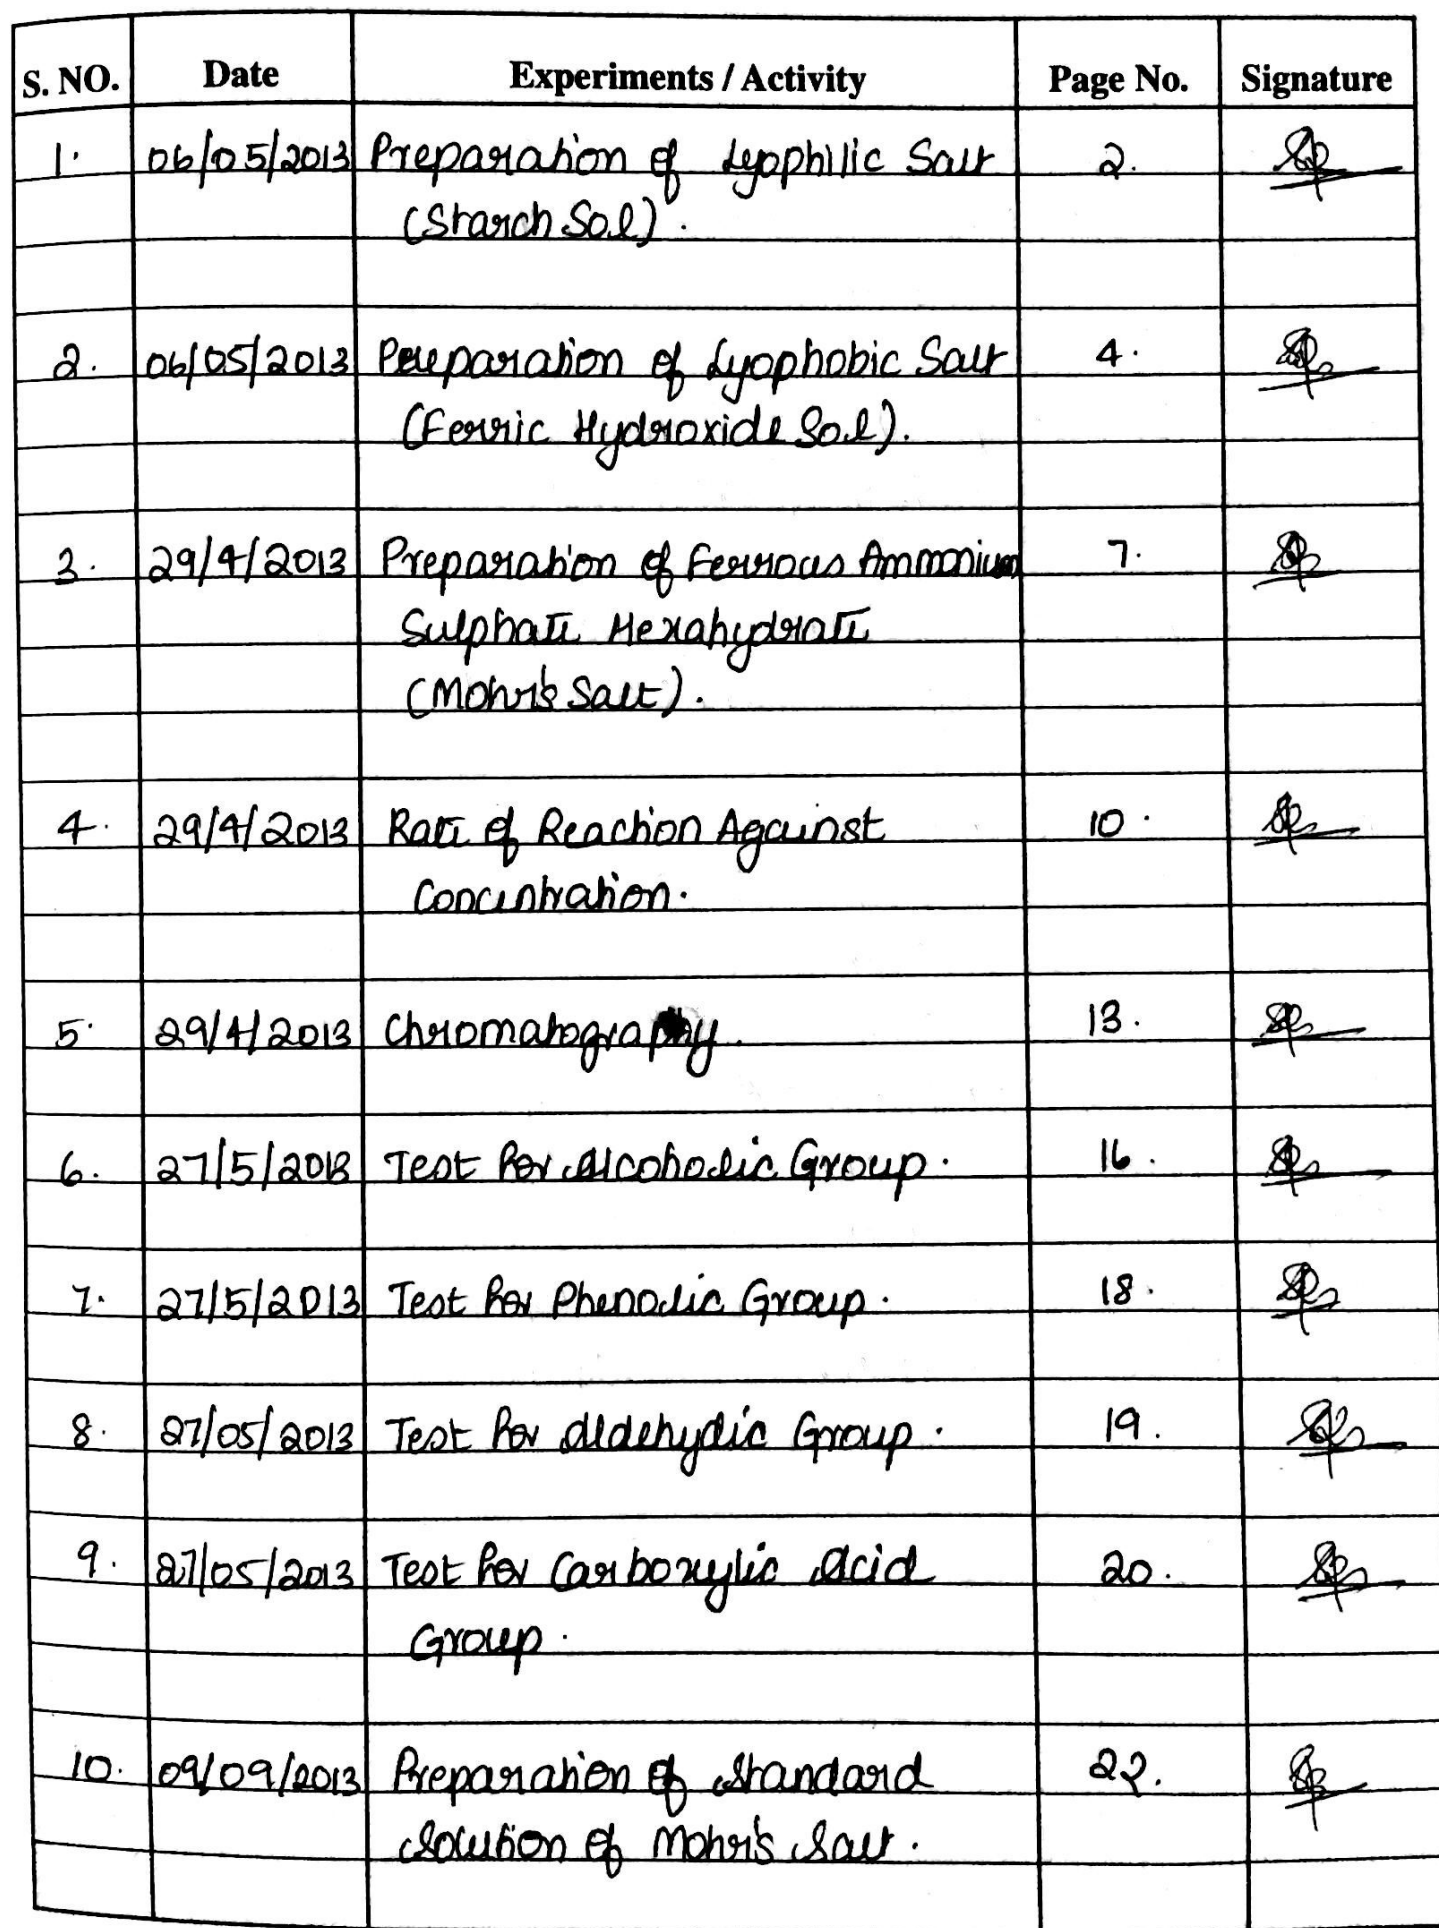 S. NO. Date Experiments / Activity Page No. Signature
1. 06/05/2013 Preparation of Lyophilic Salt 2.
(Starch Sol).
2. 06/05/2013 Preparation of Lyophobic Salt 4.
(Ferric Hydroxide Sol).
3. 29/4/2013 Preparation of Ferrous Ammonium 7.
Sulphate Hexahydrate
(Mohr's Salt).
4. 29/4/2013 Rate of Reaction Against 10.
Concentration.
5. 29/4/2013 Chromatography. 13.
6. 27/5/2013 Test for Alcoholic Group. 16.
7. 27/5/2013 Test for Phenolic Group. 18.
8. 27/05/2013 Test for Aldehydic Group. 19.
9. 27/05/2013 Test for Carboxylic Acid 20.
Group.
10. 09/09/2013 Preparation of Standard 22.
Solution of Mohr's Salt.